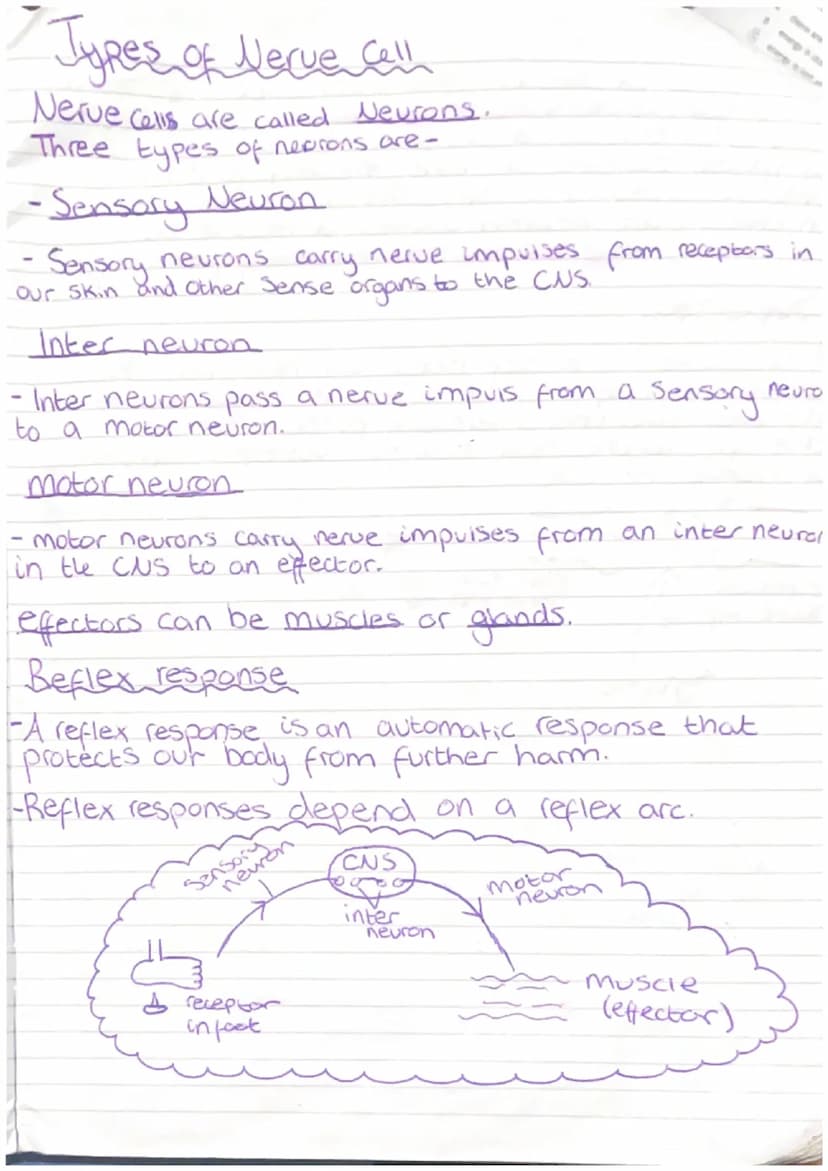 Types of Nerve Cell
Nerve cells are called Neurons.
Three types of neurons are-
- Sensory Neuron
- Sensory neurons carry nerve impulses from receptors in
our skin and other sense organs to the CNS.
Inter neuron
- Inter neurons pass a nerve impuls from a sensory neuro
to a motor neuron.
motor neuron
- motor neurons carry nerve impulses from an inter neuron
in the CNS to an effector.
effectors can be muscles or glands.
Reflex response
-A reflex response is an automatic response that
protects our body from further harm.
-Reflex responses depend on a reflex arc.
sensory
neuron
CNS
motor
neuron
inter
neuron
receptor
in foot
muscle
(effector)